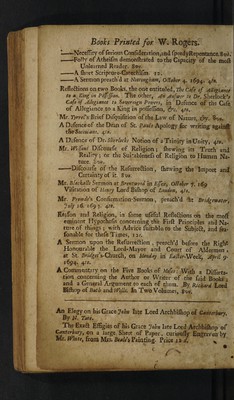 Books Printed for W. Rogers.
—Necessity of serious Consideration, and speedy Repentance. 8vo.
—Folly of Atheism demonstrated to the Capacity of the most
Unlearned Reader. 8vo.
—A short Scripture-Catechism 12.
—A Sermon preach'd at Nottingham, October 4. 1694. 4to.
Reflections on two Books, the one entituled, the Case of Allegiance
to a King in Possession. The other, An Answer to Dr. Sherlock's
Case of Allegiance to Sovereign Powers, in Defence of the Case
of Allegiance to a King in possession, &c. 4to.
Mr. Tyrrel's Brief Disquisition of the Law of Nature, &c. 8vo.
A Defence of the Dean of St. Pauls Apology for writing against
the Socinians. 4to.
A Defence of Dr. Sherlocks Notion of a Trinity in Unity, 4to.
Mr. Wilsons Discourse of Religion; shewing its Truth and
Reality; or the Suitableness of Religion to Humane Na-
ture. 8vo.
—Discourse of the Resurrection, shewing the Import and
Certainty of it. 8vo.
Mr. Blackall's Sermon at Brentwood in Essex, October 7. 1693
Visitation of Henry Lord Bishop of London, 4to.
Mr. Prowde's Confirmation-Sermon, preach'd at Bridgwater,
July 16. 1693. 4to.
Reason and Religion, in some useful Reflections on the most
eminent Hypothesis concerning the First Principles and Na-
ture of things; with Advice suitable to the Subject, and sea-
sonable for these Times, 12.
A Sermon upon the Resurrection, preach'd before the Right
Honourable the Lord-Mayor and Court of Aldermen,
at St. Bridget's-Church, on Monday in Easter-Week, April 9.
1694. 4to.
A Commentary on the Five Books of Moses: With a Disserta-
tion concerning the Author or Writer of the said Books;
and a General Argument to each of them. By Richard Lord
Bishop of Bath and Wells. In Two Volumes, 8vo.
An Elegy on his Grace John late Lord Archbishop of Canterbury.
By N. Tate.
The Exact Effigies of his Grace John late Lord Archbishop of
Canterbury, on a large Sheet of Paper, curiously Engraven by
Mr. White, from Mrs. Beale's Painting. Price 12 d.